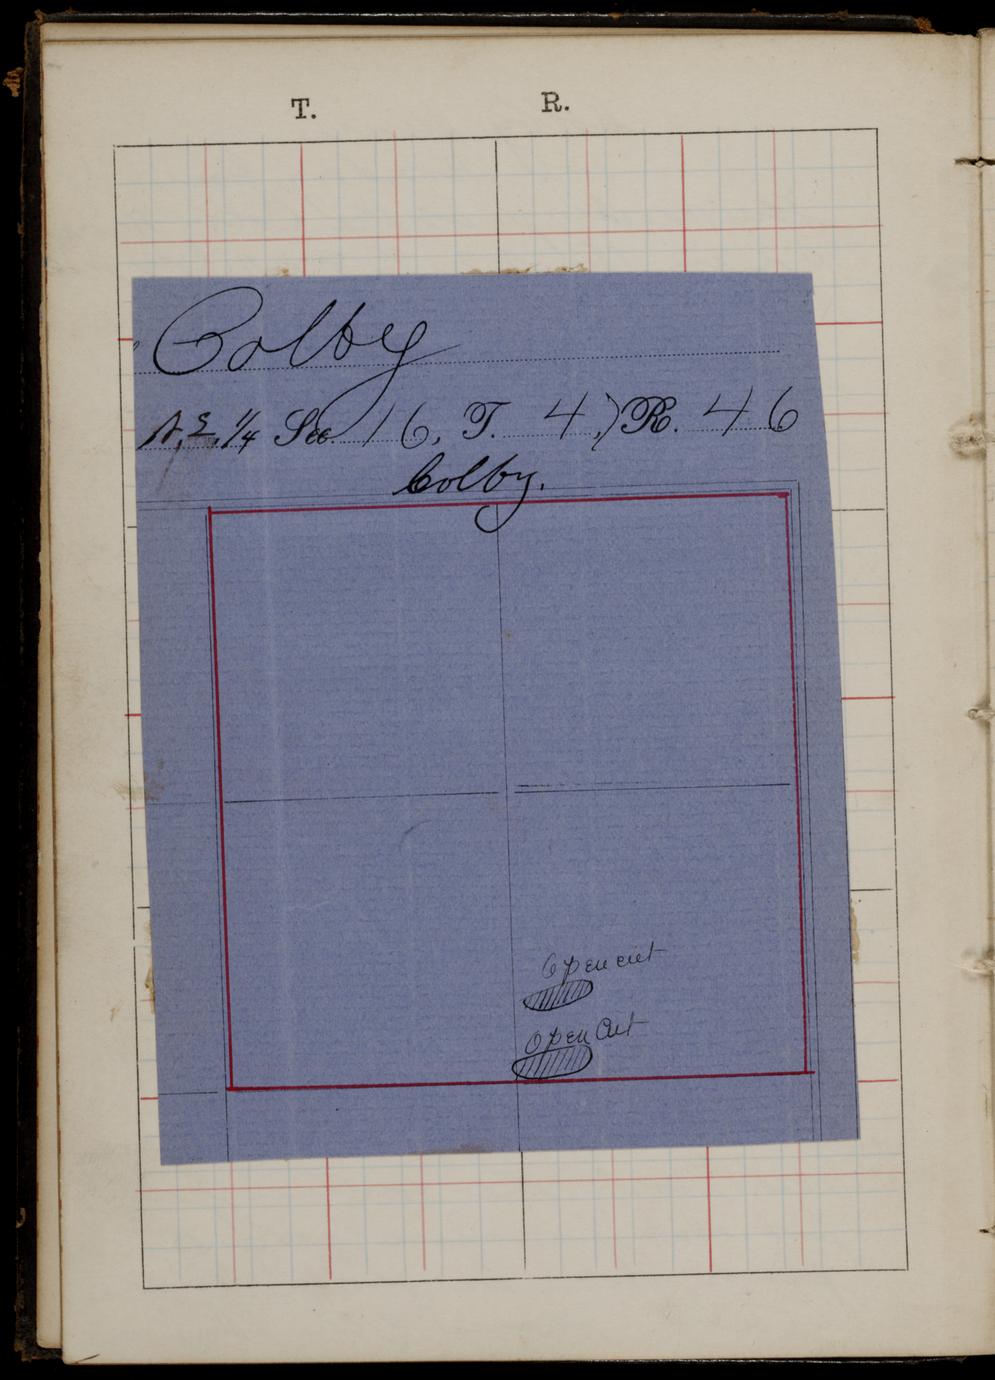 T. R.
Colby
N.E. 1/4 Sec 16, T. 47 R. 46
Colby.
Open cut
Open Cut